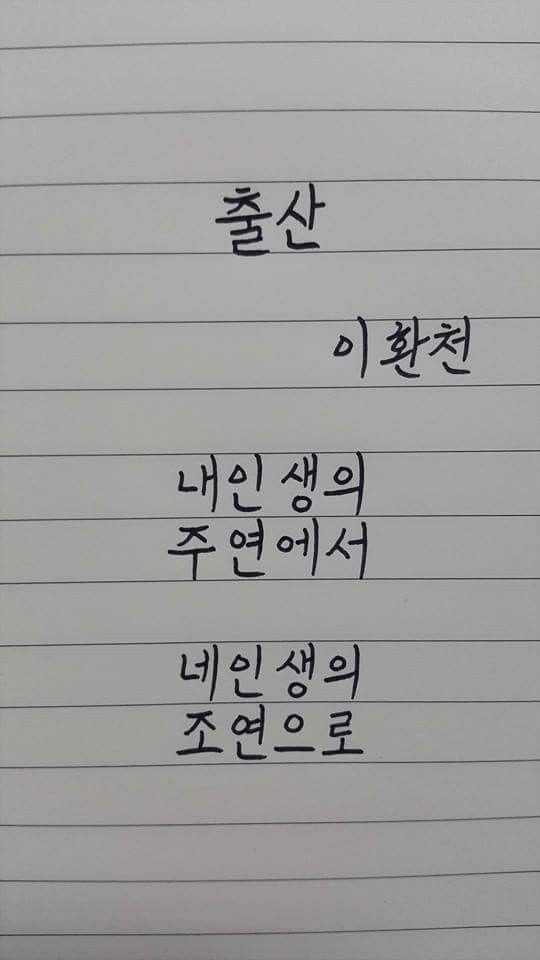 출산
이환천
내인생의
주연에서
네인생의
조연으로